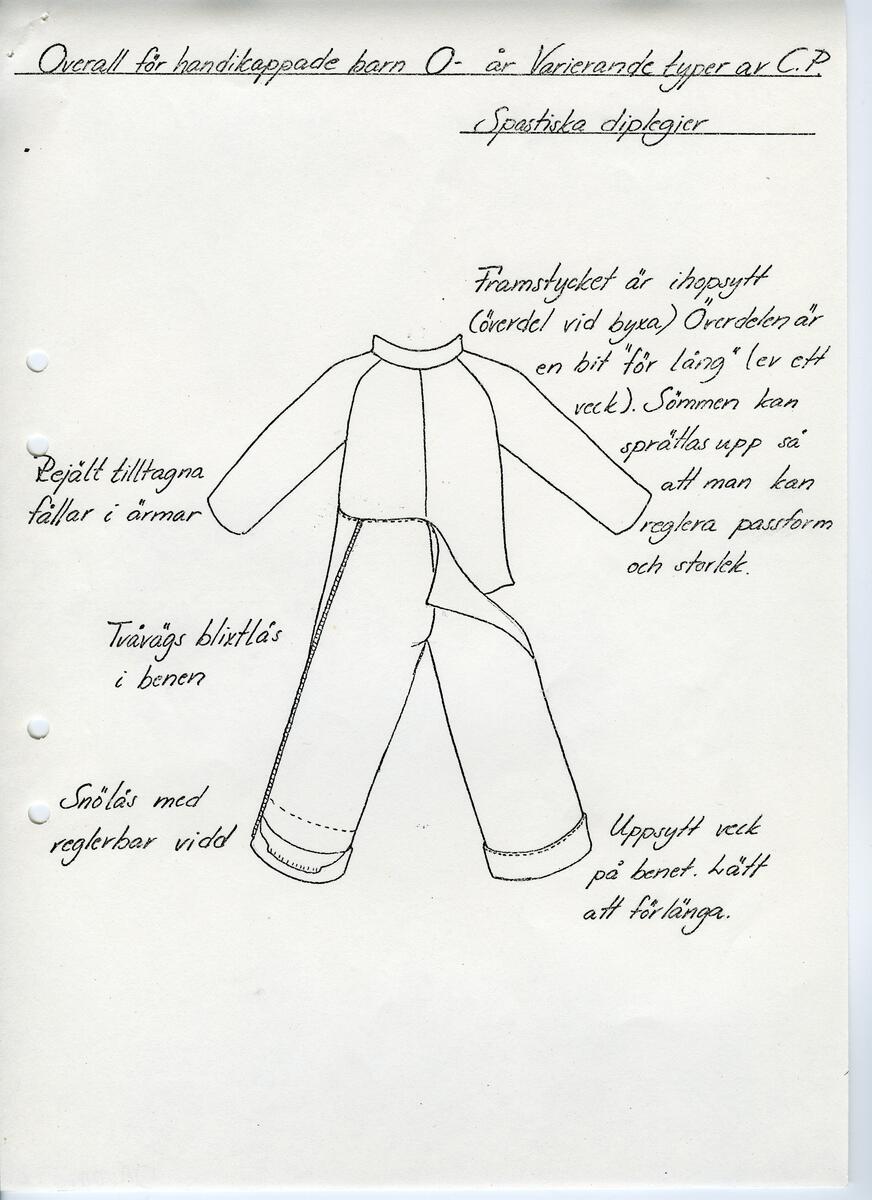 Overall för handikappade barn 0- år Varierande typer av C.P.
Spastiska diplegier
Framstycket är ihopsytt
(överdel vid byxa) Överdelen är
en bit "för lång" (ev ett
veck). Sömmen kan
sprättas upp så
att man kan
reglera passform
och storlek.
Rejält tilltagna
fållar i ärmar
Tvåvägs blixtlås
i benen
Snölås med
reglerbar vidd
Uppsytt veck
på benet. Lätt
att förlänga.